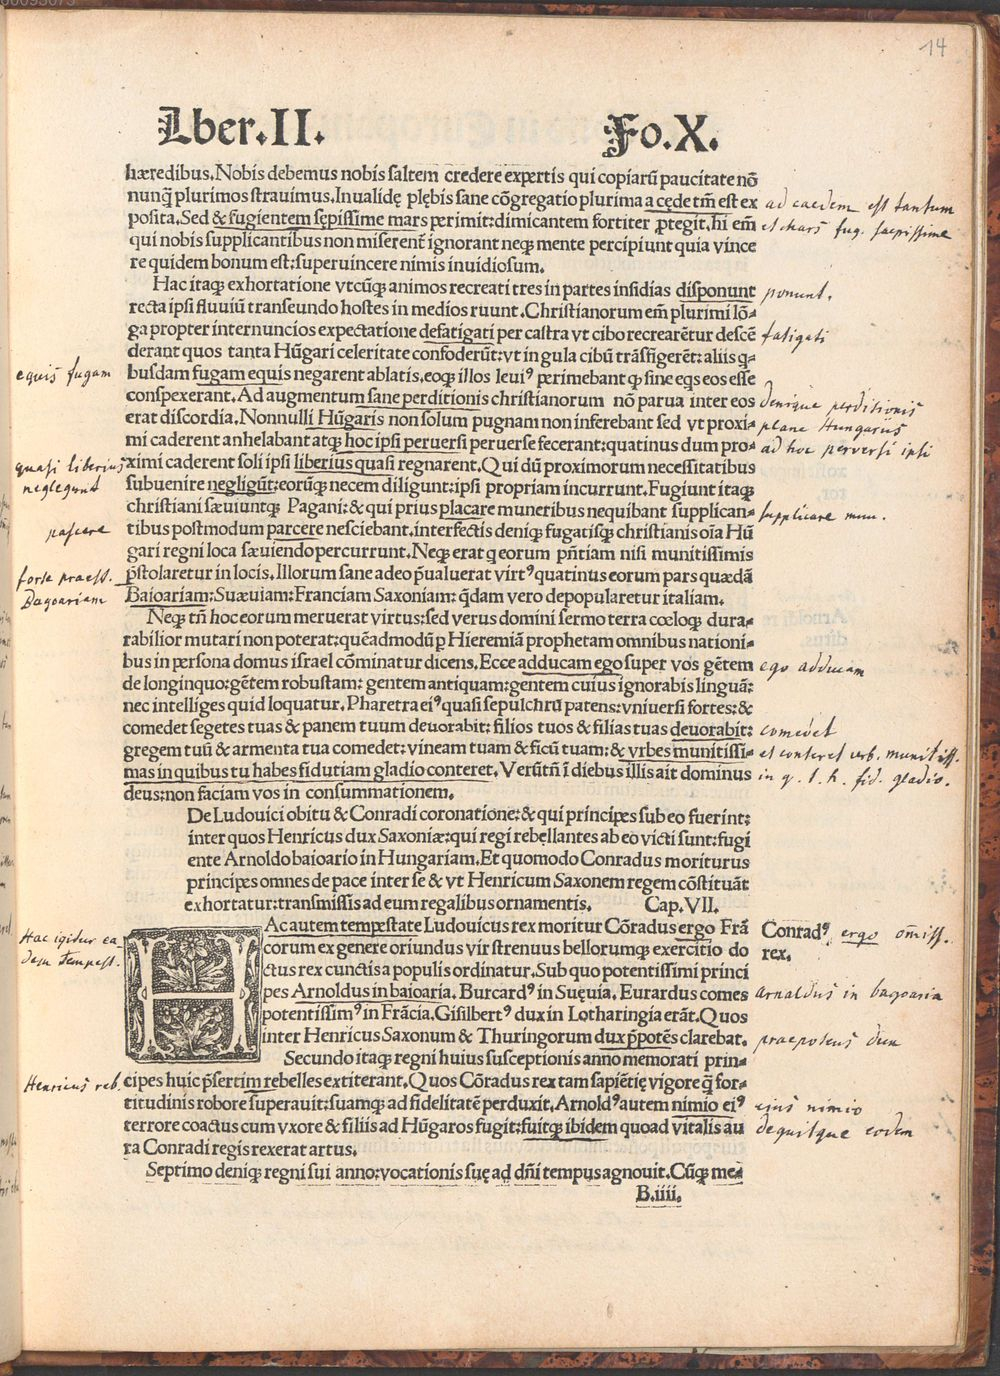 14
Lber.II.
Fo.X.
hæredibus.Nobis debemus nobis saltem credere expertis qui copiarũ paucitate nõ
nunq̃ plurimos strauimus.Inualidę plębis sane cõgregatio plurima a cęde tm̃ est ex
ad caedem est tantum
posita.Sed & fugientem sępissime mars perimit:dimicantem fortiter ꝓtegit.hi em̃
et Mars fug. saepissime
qui nobis supplicantibus non miserent̃ ignorant neqꝫ mente percipiunt quia vince
re quidem bonum est:superuincere nimis inuidiosum.
Hac itaqꝫ exhortatione vtcũqꝫ animos recreati tres in partes insidias disponunt
ponunt.
recta ipsi fluuiũ transeundo hostes in medios ruunt.Christianorum em̃ plurimi lõ⸗
ga propter internuncios expectatione defatigati per castra vt cibo recrearẽtur descẽ
fatigati
derant quos tanta Hũgari celeritate confoderũt:vt in gula cibũ trãsfigerẽt:aliis q⸗
busdam fugam equis negarent ablatis.eoqꝫ illos leuiꝰ perimebant ꝙ sine eqs eos esse
equis fugam
conspexerant.Ad augmentum sane perditionis christianorum nõ parua inter eos
denique perditionis
erat discordia.Nonnulli Hũgaris non solum pugnam non inferebant sed vt proxi⸗
plane Hungaris
mi caderent anhelabant atqꝫ hoc ipsi peruersi peruerse fecerant:quatinus dum pro⸗
ad hoc perversi ipsi
ximi caderent soli ipsi liberius quasi regnarent.Qui dũ proximorum necessitatibus
quasi liberius
subuenire negligũt:eorũqꝫ necem diligunt:ipsi propriam incurrunt.Fugiunt itaqꝫ
neglegunt
christiani sæuiuntqꝫ Pagani:& qui prius placare muneribus nequibant supplican⸗
supplicare mun.
tibus postmodum parcere nesciebant.interfectis deniqꝫ fugatisqꝫ christianis oĩa Hũ
pascere
gari regni loca sæuiendo percurrunt.Neqꝫ erat q eorum pñtiam nisi munitissimis
p̃stolaretur in locis.Illorum sane adeo p̃ualuerat virtꝰ quatinus eorum pars quædã
forte praest.
Baioariam:Suæuiam:Franciam Saxoniam:q̃dam vero depopularetur italiam.
Bagoariam
Neqꝫ tñ hoc eorum meruerat virtus:sed verus domini sermo terra cœloqꝫ dura⸗
rabilior mutari non poterat:quẽadmodũ ꝑ Hieremiã prophetam omnibus nationi⸗
bus in persona domus israel cõminatur dicens.Ecce adducam ego super vos gẽtem
ego adducam
de longinquo:gẽtem robustam:gentem antiquam:gentem cuius ignorabis linguã:
nec intelliges quid loquatur.Pharetra eiꝰ quasi sepulchrũ patens:vniuersi fortes:&
comedet segetes tuas & panem tuum deuorabit:filios tuos & filias tuas deuorabit:
comedet
gregem tuũ & armenta tua comedet:vineam tuam & ficũ tuam:& vrbes munitissi⸗
et conteret urb. munitiss.
mas in quibus tu habes fidutiam gladio conteret.Verũtñ ĩ diebus illis ait dominus
in q. t. h. fid. gladio.
deus:non faciam vos in consummationem.
De Ludouici obitu & Conradi coronatione:& qui principes sub eo fuerint:
inter quos Henricus dux Saxoniæ:qui regi rebellantes ab eo victi sunt:fugi
ente Arnoldo baioario in Hungariam.Et quomodo Conradus moriturus
principes omnes de pace inter se & vt Henricum Saxonem regem cõstituãt
exhortatur:transmissis ad eum regalibus ornamentis. Cap.VII.
HAc autem tempestate Ludouicus rex moritur Cõradus ergo Frã
Hac igitur ea
Conradꝰ
rex.
ergo omiss.
corum ex genere oriundus vir strenuus bellorumqꝫ exercitio do
dem Tempest.
ctus rex cunctis a populis ordinatur.Sub quo potentissimi princi
pes Arnoldus in baioaria.Burcardꝰ in Suęuia.Eurardus comes
arnaldus in bagoaria
potentissimꝰ in Frãcia.Gisilbertꝰ dux in Lotharingia erãt.Quos
inter Henricus Saxonum & Thuringorum dux p̃potẽs clarebat.
praepotens dux
Secundo itaqꝫ regni huius susceptionis anno memorati prin⸗
cipes huic p̃sertim rebelles extiterant.Quos Cõradus rex tam sapiẽtię vigore q̃ for⸗
Henricus reb.
titudinis robore superauit:suamqꝫ ad fidelitatẽ perduxit.Arnoldꝰ autem nimio eiꝰ
ejus nimio
terrore coactus cum vxore & filiis ad Hũgaros fugit:fuitqꝫ ibidem quoad vitalis au
deguitque eodem
ra Conradi regis rexerat artus.
Septimo deniqꝫ regni sui anno:vocationis suę ad dñi tempus agnouit.Cũqꝫ me⸗
B.iiii.